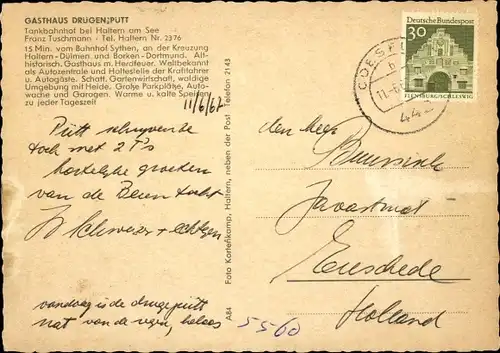 GASTHAUS DRÜGEN PUTT
Tankbahnhof bei Haltern am See
Franz Tuschmann · Tel. Haltern Nr. 2376
15 Min. vom Bahnhof Sythen, an der Kreuzung
Haltern - Dülmen und Borken - Dortmund. Alt-
historisch. Gasthaus m. Herdfeuer. Weltbekannt
als Autozentrale und Haltestelle der Kraftfahrer
u. Autogäste. Schatt. Gartenwirtschaft, waldige
Umgebung mit Heide. Große Parkplätze, Auto-
wache und Garagen. Warme u. kalte Speisen
zu jeder Tageszeit
11/6/67
Putt
toch met 2 T's
hartelijke groeten
van de
Schweer + echtgen
vandaag is de drugeputt
nat van de regen, helaas
Foto Kortenkamp, Haltern, neben der Post Telefon 2143
A84
5560
Deutsche Bundespost
30
FLENSBURG/SCHLESWIG
COESFELD
b
11.-6.
442
den Heer
Javastraat
Enschede
Holland